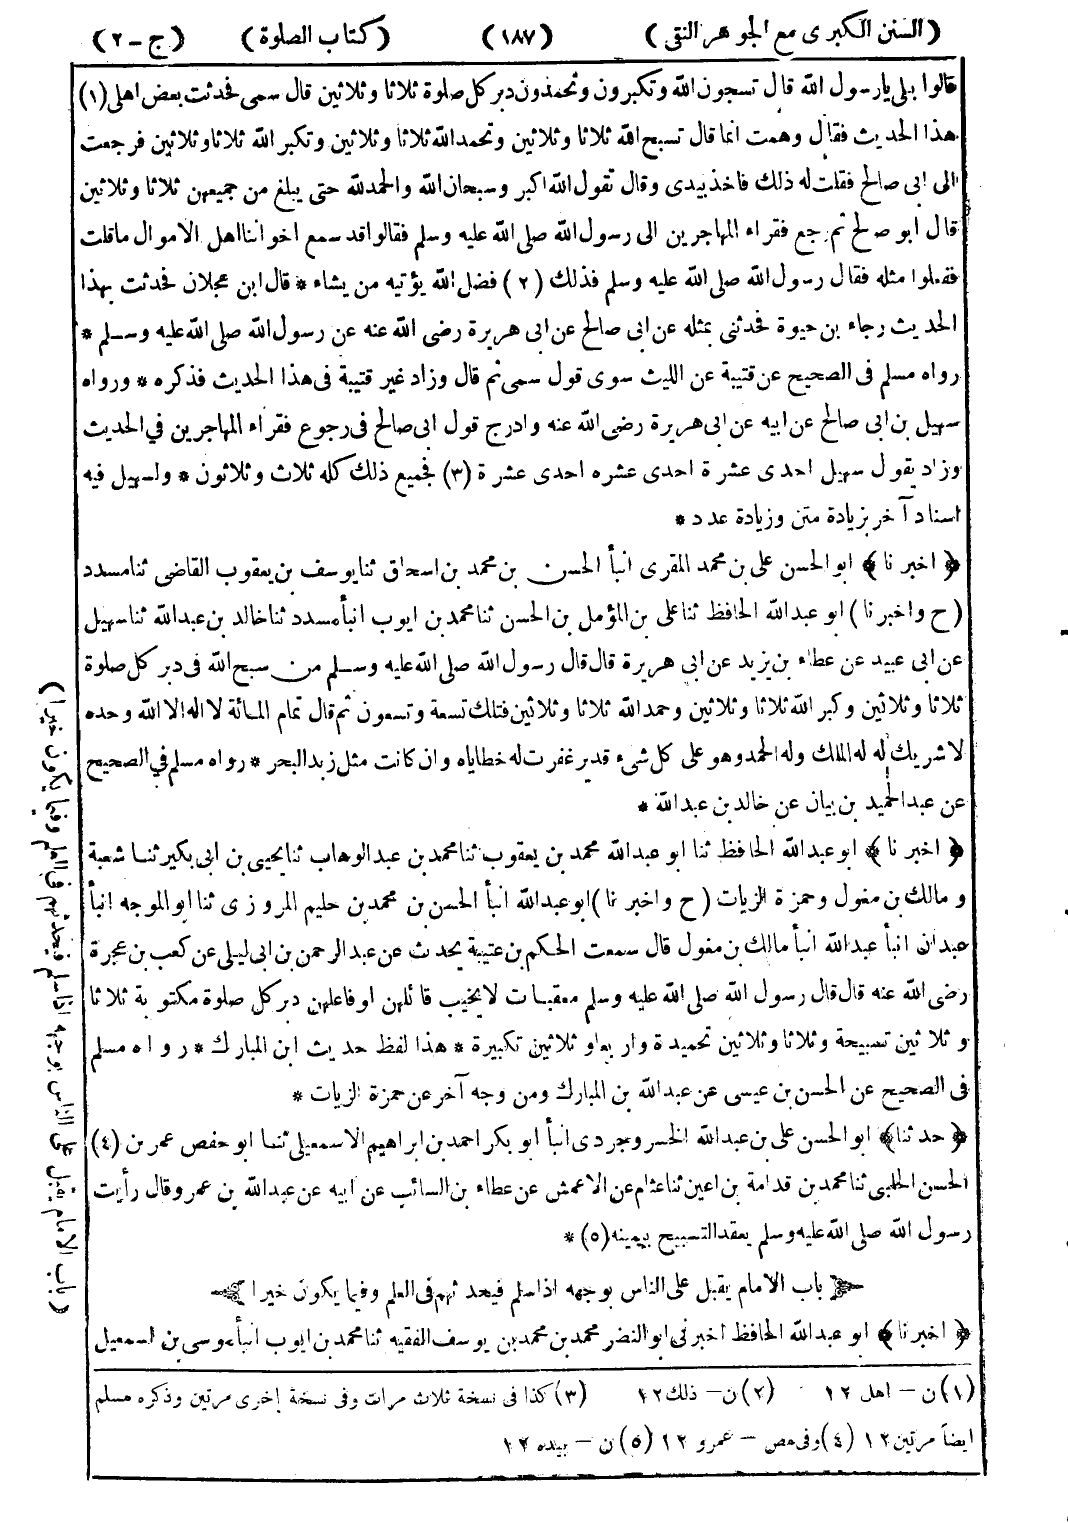 (السنن الكبرى مع الجوهر النقى) (١٨٧) (كتاب الصلوة) (ج - ٢)
قالوا بلى يارسول الله قال تسبحون الله وتكبرون وتحمدون دبر كل صلوة ثلاثا وثلاثين قال سمى فحدثت بعض اهلى (١)
هذا الحديث فقال وهمت انما قال تسبح الله ثلاثا وثلاثين وتحمد الله ثلاثا وثلاثين وتكبر الله ثلاثا وثلاثين فرجعت
الى ابى صالح فقلت له ذلك فاخذ بيدى وقال تقول الله اكبر وسبحان الله والحمد لله حتى يبلغ من جميعهن ثلاثا وثلاثين
قال ابو صالح ثم رجع فقراء المهاجرين الى رسول الله صلى الله عليه وسلم فقالوا قد سمع اخواننا اهل الاموال ما قلت
ففعلوا مثله فقال رسول الله صلى الله عليه وسلم فذلك (٢) فضل الله يؤتيه من يشاء * قال ابن عجلان فحدثت بهذا
الحديث رجاء بن حيوة فحدثنى بمثله عن ابى صالح عن ابى هريرة رضى الله عنه عن رسول الله صلى الله عليه وسلم *
رواه مسلم فى الصحيح عن قتيبة عن الليث سوى قول سمى ثم قال وزاد غير قتيبة فى هذا الحديث فذكره * ورواه
سهيل بن ابى صالح عن ابيه عن ابى هريرة رضى الله عنه وادرج قول ابى صالح فى رجوع فقراء المهاجرين في الحديث
وزاد يقول سهيل احدى عشرة احدى عشره احدى عشرة (٣) فجميع ذلك كله ثلاث وثلاثون * ولسهيل فيه
اسناد آخر بزيادة متن وزيادة عدد *
﴿ اخبرنا ﴾ ابو الحسن على بن محمد المقرى انبأ الحسن بن محمد بن اسحاق ثنا يوسف بن يعقوب القاضى ثنا مسدد
(ح واخبرنا) ابو عبد الله الحافظ ثنا على بن المؤمل بن الحسن ثنا محمد بن ايوب انبأ مسدد ثنا خالد بن عبد الله ثنا سهيل
عن ابى عبيد عن عطاء بن يزيد عن ابى هريرة قال قال رسول الله صلى الله عليه وسلم من سبح الله فى دبر كل صلوة
ثلاثا وثلاثين وكبر الله ثلاثا وثلاثين وحمد الله ثلاثا وثلاثين فتلك تسعة وتسعون ثم قال تمام المائة لا اله الا الله وحده
لاشريك له له الملك وله الحمد وهو على كل شىء قدير غفرت له خطاياه وان كانت مثل زبد البحر * رواه مسلم في الصحيح
عن عبد الحميد بن بيان عن خالد بن عبد الله *
﴿ اخبرنا ﴾ ابو عبد الله الحافظ ثنا ابو عبد الله محمد بن يعقوب ثنا محمد بن عبد الوهاب ثنا يحيى بن ابى بكير ثنا شعبة
ومالك بن مغول وحمزة الزيات (ح واخبرنا) ابو عبد الله انبأ الحسن بن محمد بن حليم المروزى ثنا ابو الموجه انبأ
عبدان انبأ عبد الله انبأ مالك بن مغول قال سمعت الحكم بن عتيبة يحدث عن عبد الرحمن بن ابى ليلى عن كعب بن عجرة
رضى الله عنه قال قال رسول الله صلى الله عليه وسلم معقبات لا يخيب قائلهن او فاعلهن دبر كل صلوة مكتوبة ثلاثا
وثلاثين تسبيحة وثلاثا وثلاثين تحميدة واربعا وثلاثين تكبيرة * هذا لفظ حديث ابن المبارك * رواه مسلم
فى الصحيح عن الحسن بن عيسى عن عبد الله بن المبارك ومن وجه آخر عن حمزة الزيات *
﴿ حدثنا ﴾ ابو الحسن على بن عبد الله الخسروجردى انبأ ابو بكر احمد بن ابراهيم الاسمعيلى ثنا ابو حفص عمر بن (٤)
الحسن الحلبى ثنا محمد بن قدامة بن اعين ثنا عثام عن الاعمش عن عطاء بن السائب عن ابيه عن عبد الله بن عمرو قال رأيت
رسول الله صلى الله عليه وسلم يعقد التسبيح بيمينه (٥) *
باب الامام يقبل على الناس بوجهه اذا سلم فيحدثهم فى العلم وفيما يكون خيرا
﴿ اخبرنا ﴾ ابو عبد الله الحافظ اخبرنى ابو النضر محمد بن محمد بن يوسف الفقيه ثنا محمد بن ايوب انبأ موسى بن اسمعيل
(١) ن - اهل ١٢ (٢) ن - ذلك ١٢ (٣) كذا فى نسخة ثلاث مرات وفى نسخة إخرى مرتين وذكره مسلم
ايضا مرتين ١٢ (٤) وفى مص - عمرو ١٢ (٥) ن - بيده ١٢
(باب الامام يقبل على الناس بوجهه اذا سلم فيحدثهم فى العلم وفيما يكون خيرا)